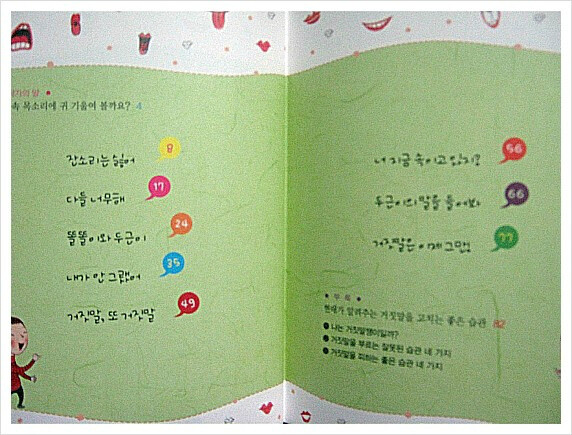 가의 말 •
속 목소리에 귀 기울여 볼까요? 4
잔소리는 싫어 8
다들 너무해 17
똘똘이와 두근이 24
내가 안 그랬어 35
거짓말, 또 거짓말 49
너 지금 속이고 있지? 56
두근이의 말을 들어봐 66
거짓말은 이제 그만! 77
• 부 록 •
현재가 알려주는 거짓말을 고치는 좋은 습관 82
● 나는 거짓말쟁이일까?
● 거짓말을 부르는 잘못된 습관 네 가지
● 거짓말을 피하는 좋은 습관 네 가지